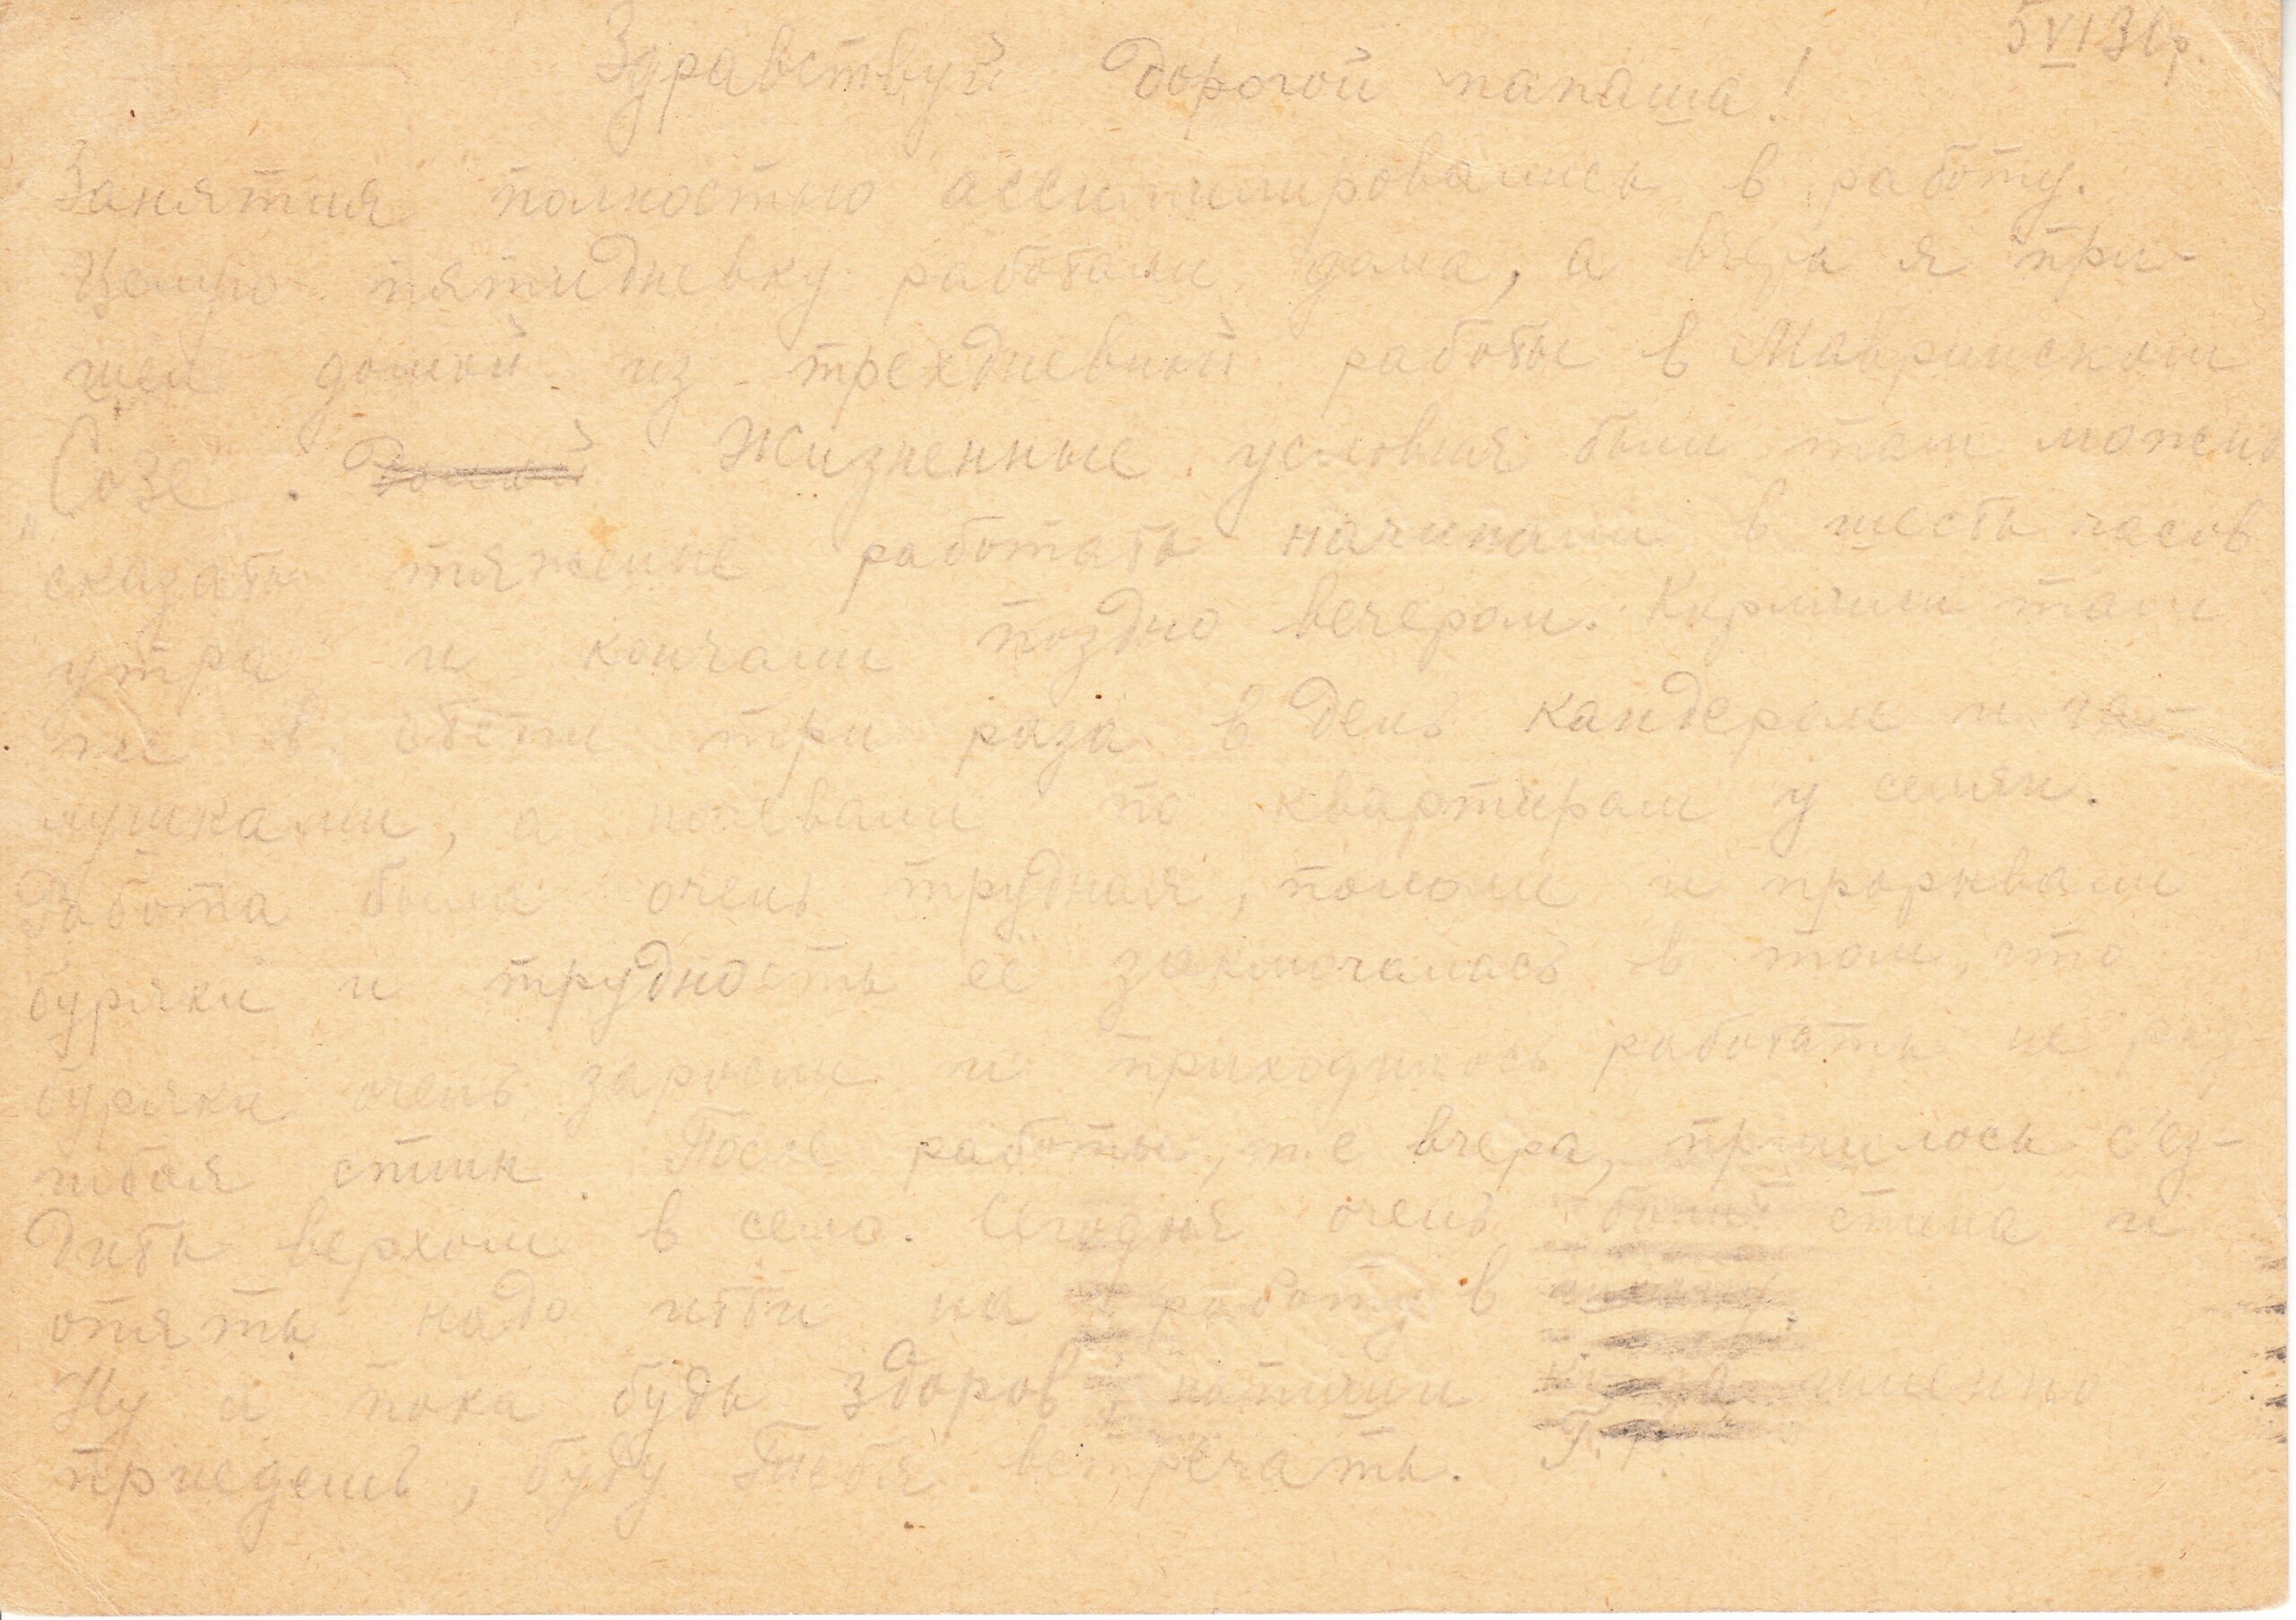 5 VI 31г.
Здравствуй дорогой папаша!
Занятия полностью ассимилировались в работу.
Целую пятидневку работали дома, а вчера я при-
шел домой из трехдневной работы в Мавринском
„Созе". Жизненные условия были там можно
сказать тяжелые работать начинали в шесть часов
утра и кончали поздно вечером. Кормили там
три раза в день кандером и га-
лушками, а ночевали по квартирам у селян.
Работа была очень трудная, пололи и прорывали
буряки и трудность её заключалась в том, что
буряки очень заросли и приходилось работать не раз-
гибая спин. После работы, т.е вчера, пришлось с'ез-
дить верхом в село. Сегодня очень болит спина и
опять надо итти на работу в школу.
Ну а пока будь здоров, напиши когда именно
приедешь, буду Тебя встречать.